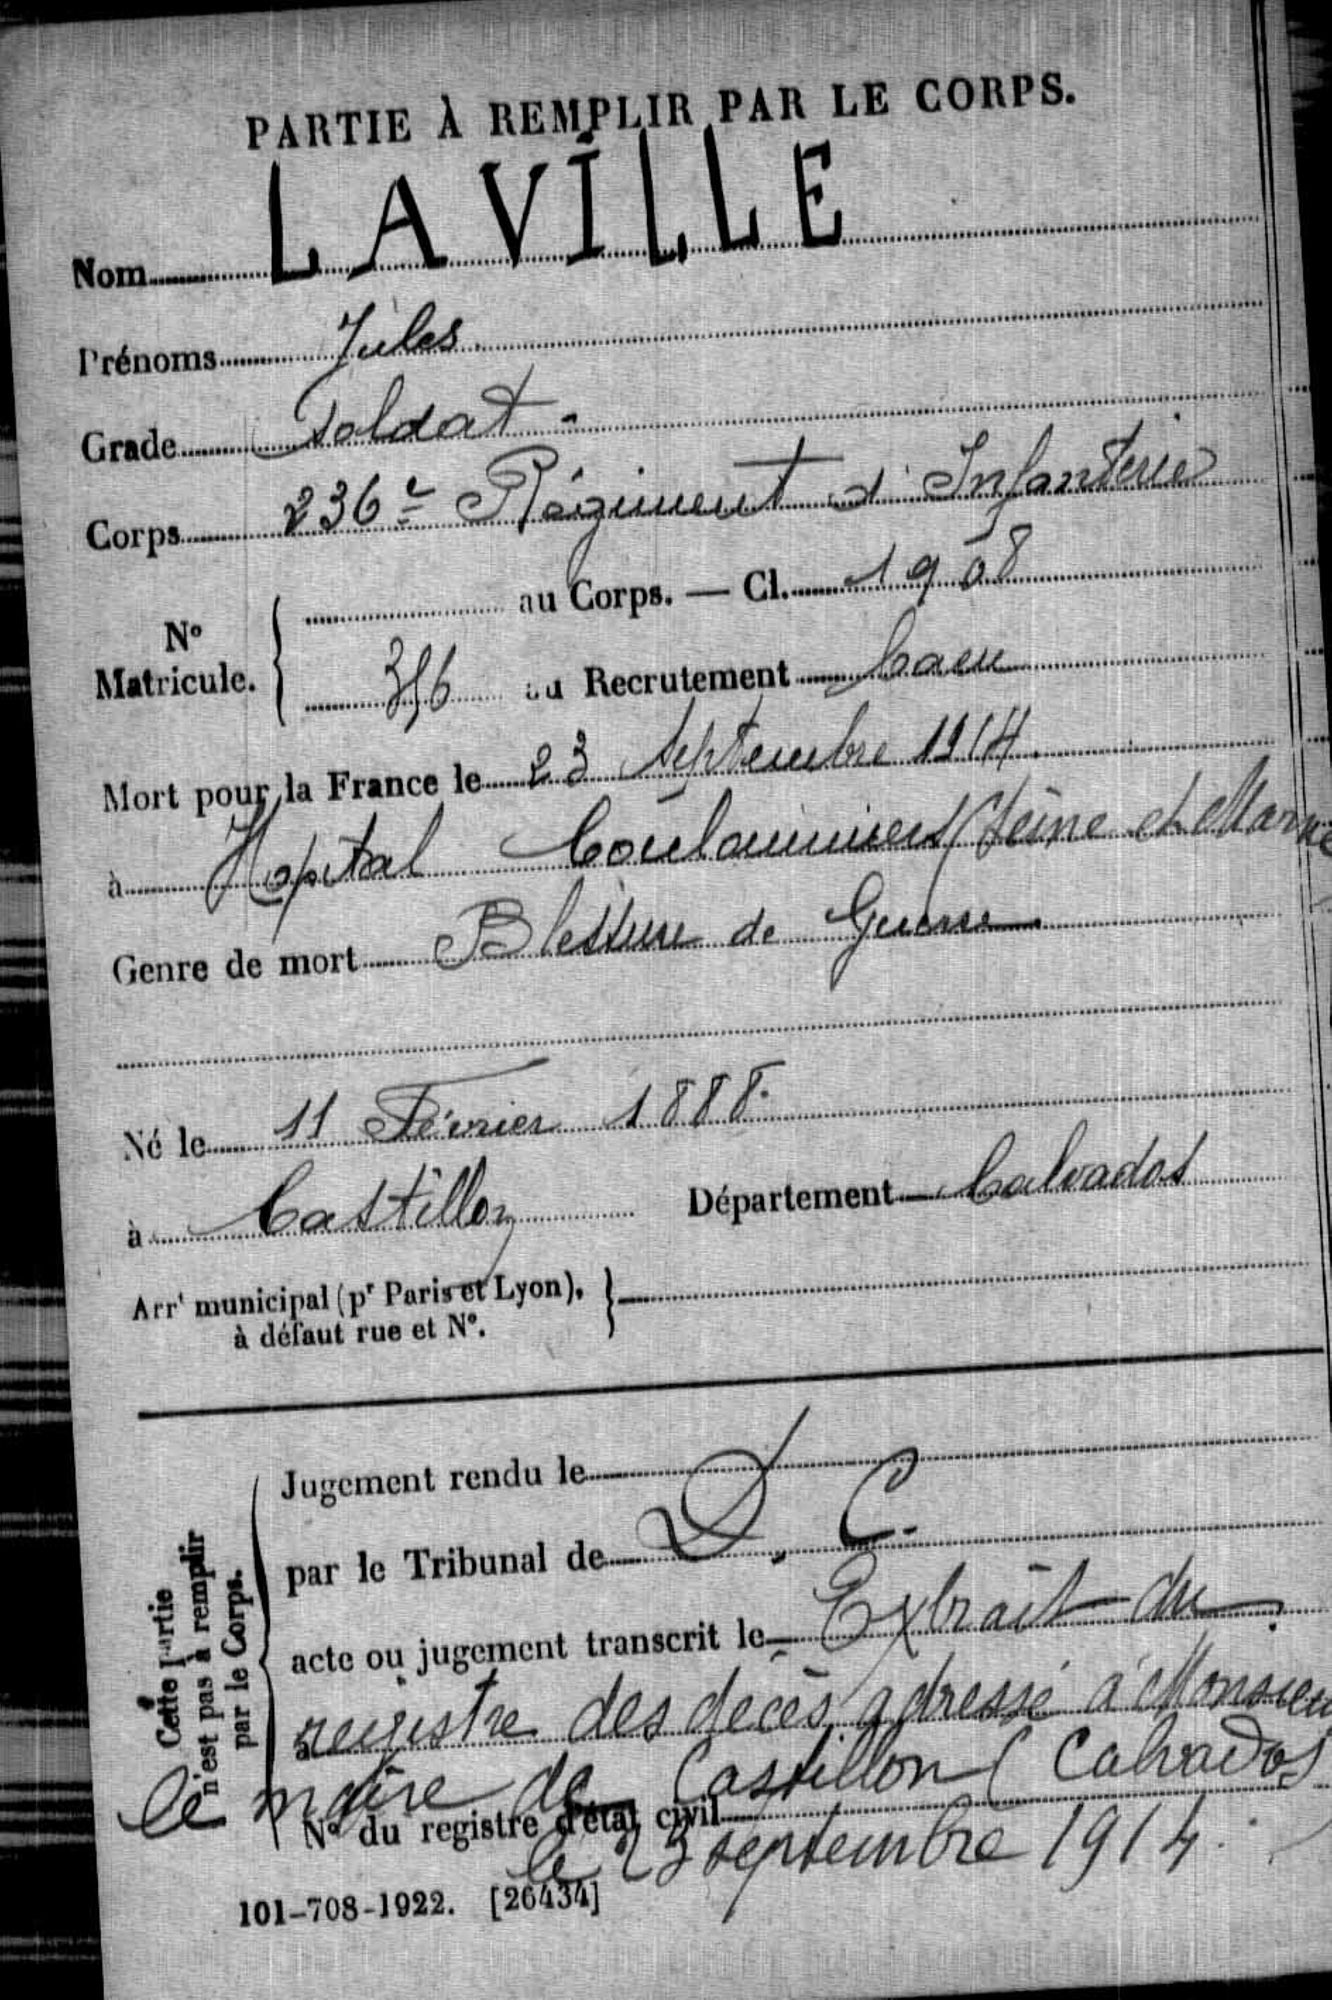 PARTIE À REMPLIR PAR LE CORPS.
Nom LAVILLE
Prénoms Jules
Grade Soldat
Corps 236e Régiment d'Infanterie
N° Matricule. { au Corps. — Cl. 1908
au Recrutement Caen
Mort pour la France le 23 Septembre 1914
à Hopital Coulommiers (Seine et Marne
Genre de mort Blessure de Guerre
Né le 11 Février 1888
à Castillon Département Calvados
Arrt municipal (pr Paris et Lyon), }
à défaut rue et N°.
Cette partie n'est pas à remplir par le Corps.
Jugement rendu le
par le Tribunal de D. C.
acte ou jugement transcrit le Extrait du
à registre des décès adressé à Monsieu
le maire de Castillon (Calvados
N° du registre d'état civil
le 23 septembre 1914.
101-708-1922. [26434]